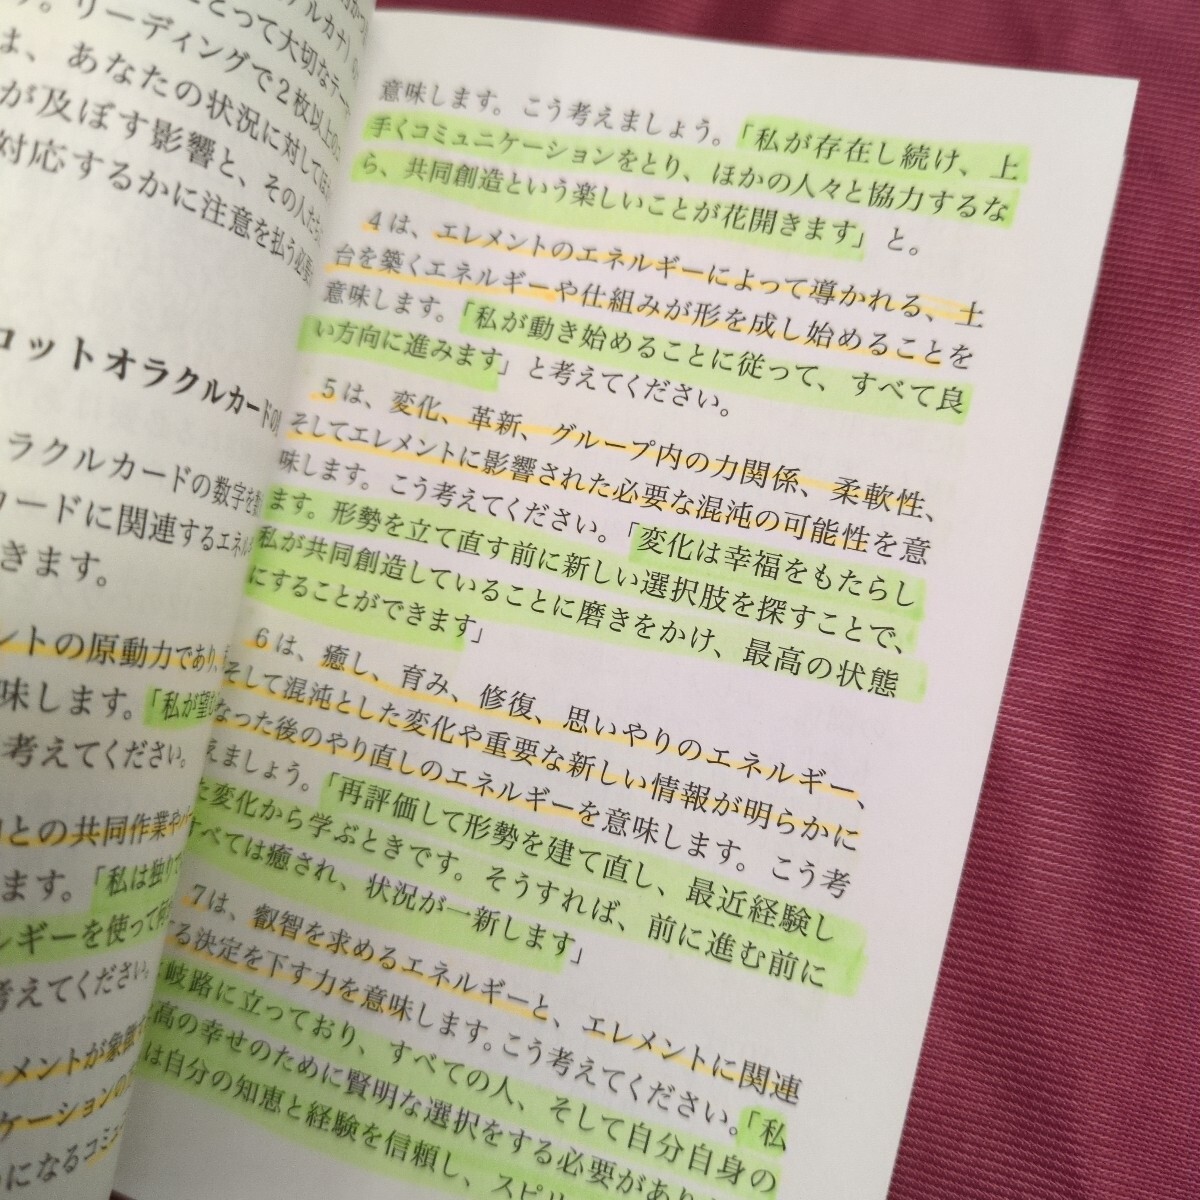 リーディングで2枚以上の
は、あなたの状況に対して
が及ぼす影響と、その人た
対応するかに注意を払う必要
ロットオラクルカードの
ラクルカードの数字を
カードに関連するエネル
きます。
ントの原動力であり、
味します。「私が望む
考えてください。
との共同作業や
ます。「私は独り
ルギーを使って何
考えてください。
メントが象徴
ケーションの
になるコミュ
意味します。こう考えましょう。「私が存在し続け、上
手くコミュニケーションをとり、ほかの人々と協力するな
ら、共同創造という楽しいことが花開きます」と。
4は、エレメントのエネルギーによって導かれる、土
台を築くエネルギーや仕組みが形を成し始めることを
意味します。「私が動き始めることに従って、すべて良
い方向に進みます」と考えてください。
5は、変化、革新、グループ内の力関係、柔軟性、
そしてエレメントに影響された必要な混沌の可能性を意
味します。こう考えてください。「変化は幸福をもたらし
ます。形勢を立て直す前に新しい選択肢を探すことで、
私が共同創造していることに磨きをかけ、最高の状態
にすることができます」
6は、癒し、育み、修復、思いやりのエネルギー、
そして混沌とした変化や重要な新しい情報が明らかに
なった後のやり直しのエネルギーを意味します。こう考
えましょう。「再評価して形勢を建て直し、最近経験し
た変化から学ぶときです。そうすれば、前に進む前に
すべては癒され、状況が一新します」
7は、叡智を求めるエネルギーと、エレメントに関連
する決定を下す力を意味します。こう考えてください。「私
は岐路に立っており、すべての人、そして自分自身の
高の幸せのために賢明な選択をする必要があり
は自分の知恵と経験を信頼し、スピリ